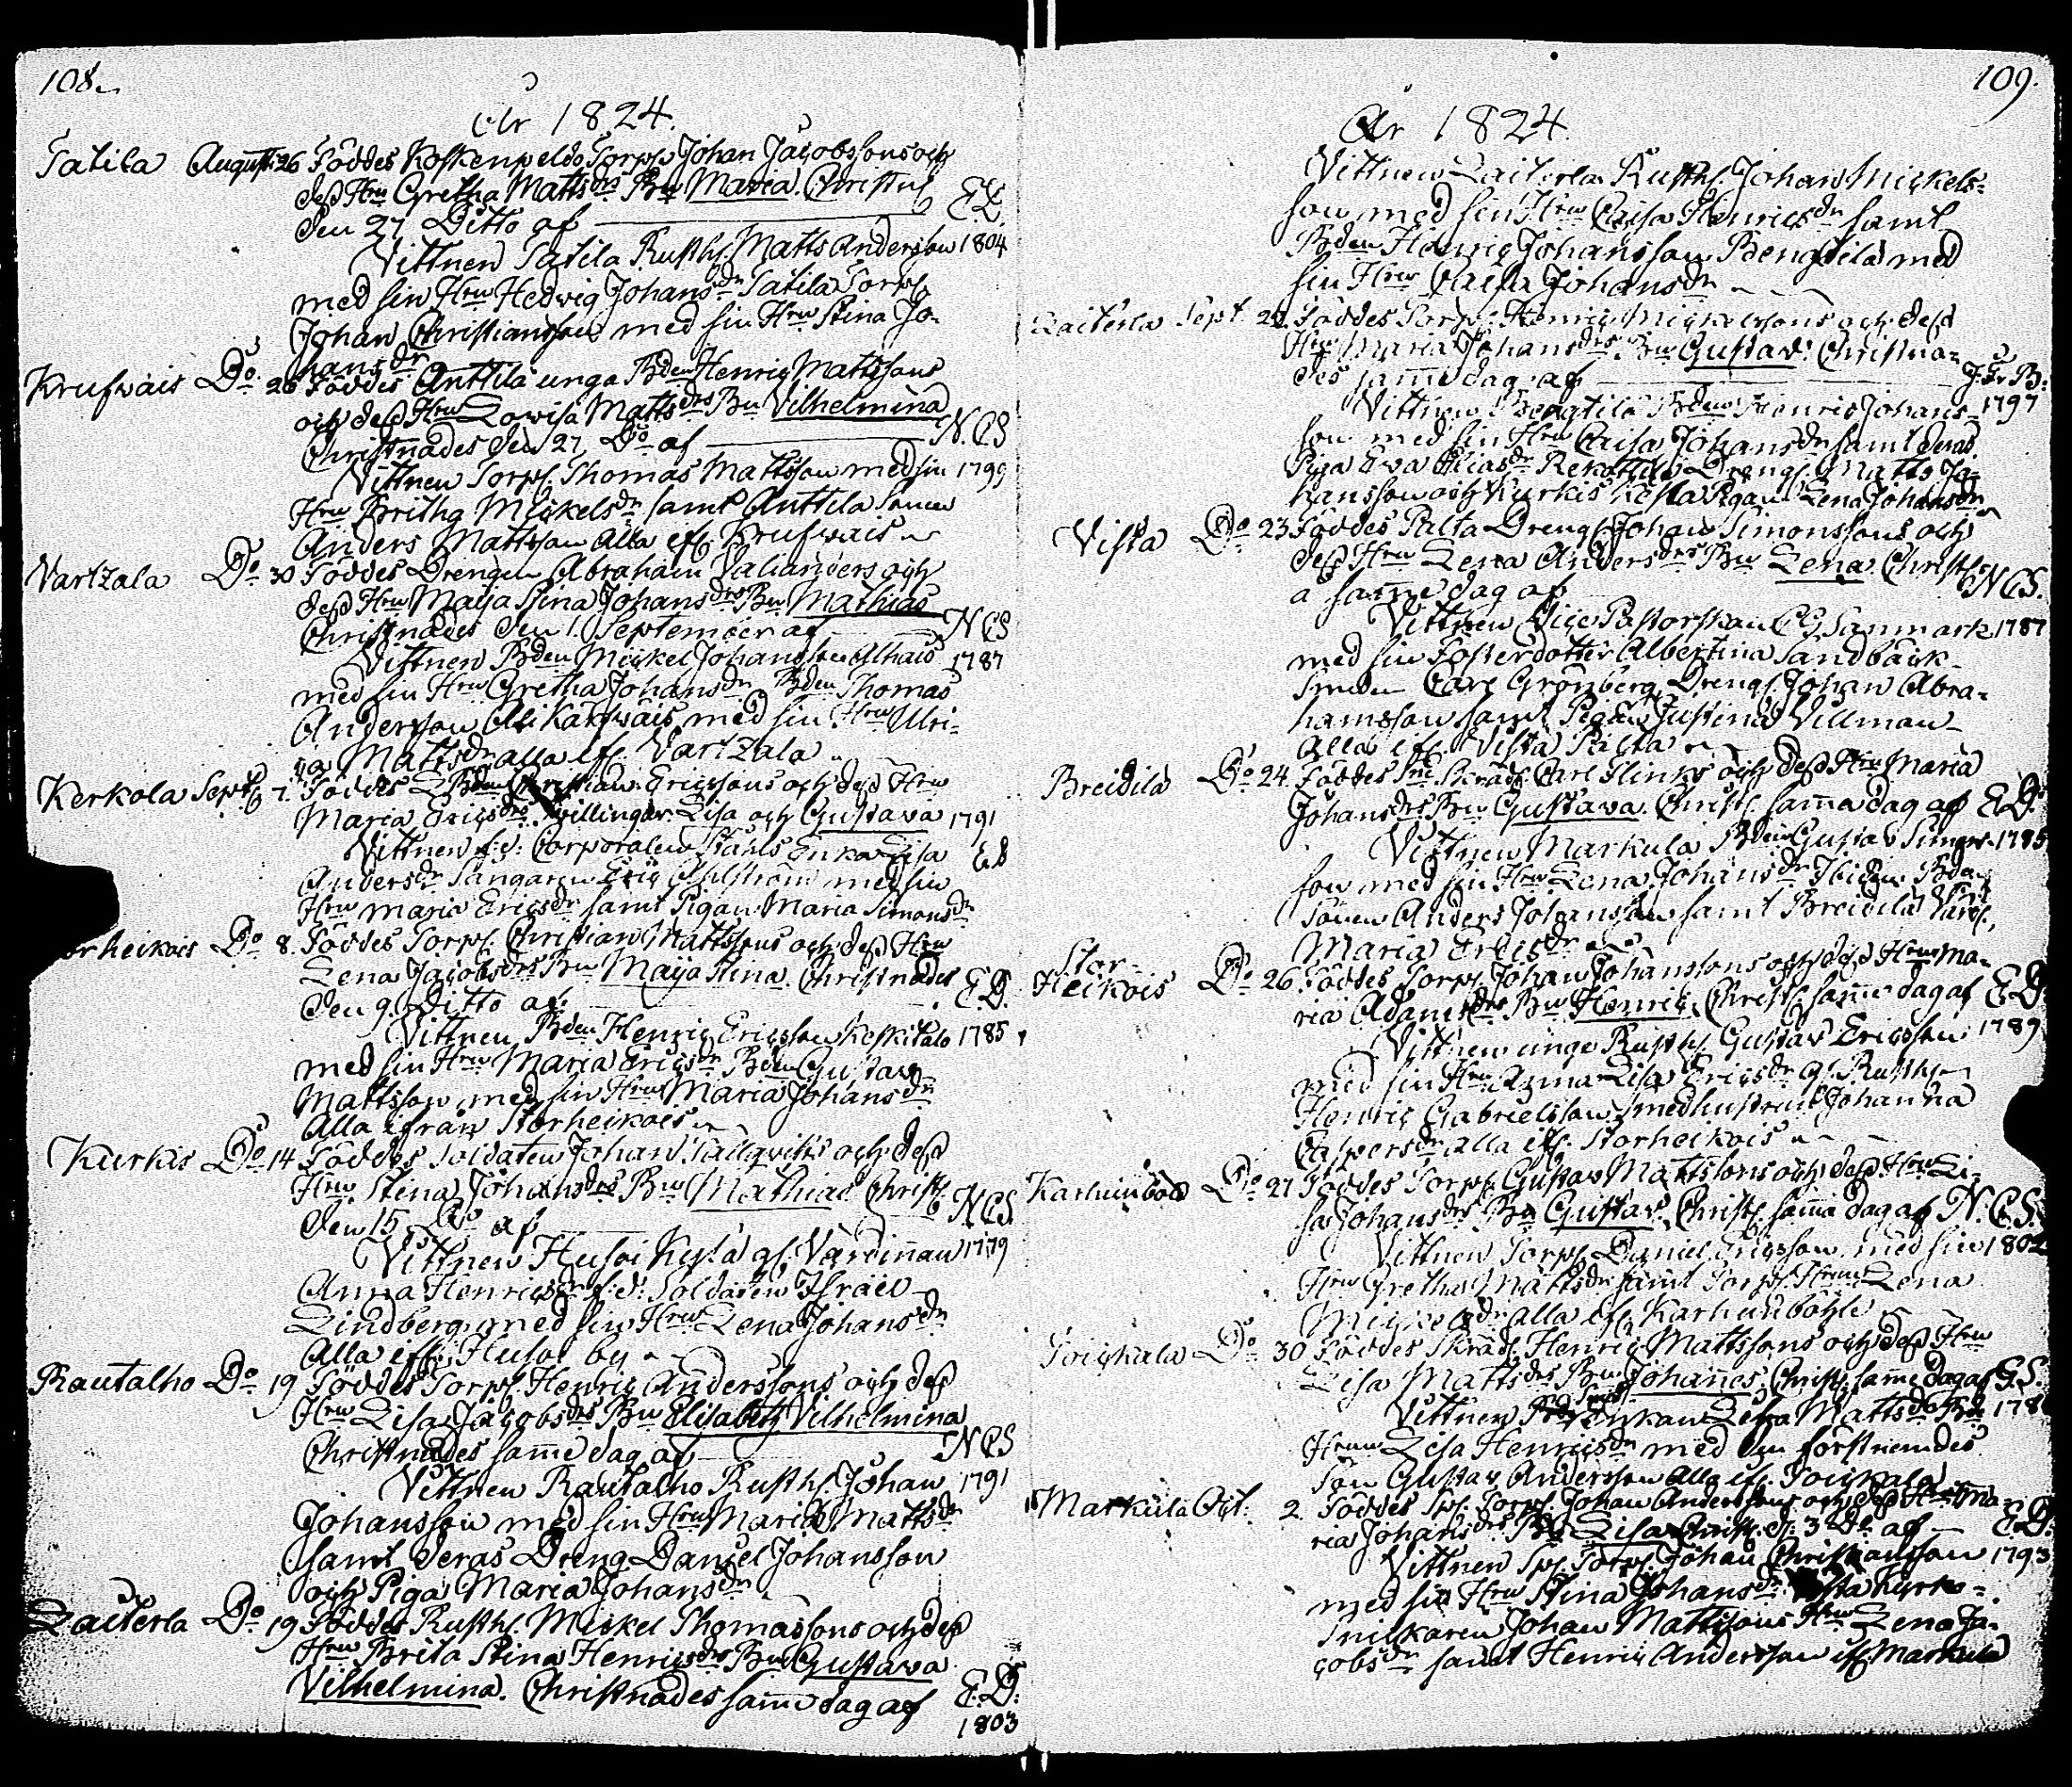 108.
År 1824.
Tatila Augusti 26 Föddes Koskenpeldo Torp. Johan Jacobssons och
dess Hru Gretha Matts drs Bn Maria. Christn.
den 27 Ditto af E.L.
Vittnen Tatila Rusth. Matts Andersson 1804
med sin Hru Hedvig Johans dr Tatila Torp.
Johan Christiansson med sin Hru Stina Jo-
hans dr
Krufwais Do 26 Föddes Anttila unga Bden Henric Mattssons
och dess Hru Lowisa Matts drs Bn Vilhelmina
Christnades den 27 Do af N.C.S
Vittnen Torp. Thomas Mattsson med sin 1799
Hru Britha Mickels dr samt Anttila Sonen
Anders Mattsson alla ifr. Krufwais
Vartzala Do 30 Föddes Drengen Abraham Valianders och
dess Hru Maja Stina Johans drs Bn Mathias
Christnades den 1. September af N.C.S
Vittnen Bden Mickel Johansson Alhais 1787
med sin Hru Gretha Johans dr Bden Thomas
Andersson Alikarfwais med sin Hru Ulri-
ca Matts dr alla ifr. Vartzala
Kerkola Sept. 1. Föddes Bden Christian Ericssons och dess Hru
Maria Erics drs Tvillingar Lisa och Gustava 1791
Vittnen f.d. Corporalen Ståhls Enka Lisa E.D
Anders dr Sangaren Eric Ahlström med sin
Hru Maria Erics dr samt Pigan Maria Simons dr
orheikois Do 8. Föddes Torp. Christian Mattssons och dess Hru
Lena Jacobs drs Bn Maja Stina. Christnades
den 9. Ditto af E.D.
Vittnen Bden Henric Ericsson Keskitalo 1785
med sin Hru Maria Erics dr Bden Gustav
Mattsson med sin Hru Maria Johans dr
Alla ifrån Storheikois
Kurkis Do 14 Föddes Soldaten Johan Tallqvists och dess
Hru Stina Johans drs Bn Mathias Christ.
den 15 Do af N.C.S.
Vittnen Husoi Kylä gl. Värdinnan 1779
Anna Henrics dr f.d. Soldaten Israel
Lindberg med sin Hru Lena Johans dr
Alla ifr. Husoi by
Rautalho Do 19 Föddes Torp. Henric Anderssons och dess
Hru Lisa Jacobs drs Bn Elisabeth Vilhelmina
Christnades samma dag af N.C.S
Vittnen Rautalho Rusth. Johan 1791
Johansson med sin Hru Maria Matts dr
samt deras Dreng Daniel Johansson
och Piga Maria Johans dr
Laiterla Do 19 Föddes Rusth. Mickel Thomassons och dess
Hru Brita Stina Henrics drs Bn Gustava
Vilhelmina. Christnades samma dag af E.D.
1803
109.
År 1824.
Vittnen Laiterla Rusth. Johan Mickels-
son med sin Hru Caisa Henrics dr samt
Bden Henric Johansson Bengtilä med
sin Hru Caisa Johans dr
Laiterla Sept. 22. Föddes Torp. Henric Mickelssons och dess
Hru Maria Johans drs Bn Gustav. Christna-
des samma dag af J.Fr.B.
Vittnen Bengtilä Bden Henric Johans- 1797
son med sin Hru Caisa Johans dr samt deras
Piga Eva Elias dr Rekottila Dreng. Matts Jo-
hansson och Kurkis Pigan Lena Johans dr
Vista Do 23 Föddes Palta Dreng. Johan Simonssons och
dess Hru Lena Anders drs Bn Lena. Christ.
samma dag af N.C.S.
Vittnen Vice Pastorskan C G Sanmark 1787
med sin Fosterdotter Albertina Sandbäck
Smeden Carl Grönberg Dreng. Johan Abra-
hamsson samt Pigan Justina Villman
Alla ifr. Vista Palta
Breidilä Do 24. Föddes Skräd. Carl Flinks och dess Hru Maria
Johans drs Bn Gustava. Christ. samma dag af E.D.
Vittnen Markula Bden Gustav Simons- 1785
son med sin Hru Lena Johans dr Ibidem Bden
Sonen Anders Johansson samt Breidilä
Maria Erics dr
Stor-
Heikois Do 26 Föddes Torp. Johan Johanssons och dess Hru Ma-
ria Adams drs Bn Henric. Christ. samma dag af E.D.
Vittnen unge Rusth. Gustav Ericsson 1789
med sin Hru Anna Lisa Erics dr gl. Rusth.
Henric Gabrielsson med hustrun Johanna
Caspers dr alla ifr. Storheikois
Karhunböle Do 27 Föddes Torp. Gustav Mattssons och dess Hru Li-
sa Johans drs Bn Gustav. Christ. samma dag af N.C.S.
Vittnen Torp. Daniel Ericsson med sin 1802
Hru Gretha Matts dr samt Torp. Hrun Lena
Mickels dr alla ifr. Karhunböhle
Toickala Do 30 Föddes Skräd. Henric Mattssons och dess Hru
Lisa Matts drs Bn Johanes. Christ. samma dag af G.S.
Vittnen Lisa Matts dr 178
Hrun Lisa Henrics dr med den förstnemdes
son Gustav Andersson alla ifr. Toickala
Markula Oct. 2. Föddes Sp. Torp. Johan Anderssons och dess Hru Ma-
ria Johans drs Bn Lisa Christ. d. 3 Do af E.D.
Vittnen Sp. Torp. Johan Christiansson 1793
med sin Hru Stina Johans dr Vista Kyrko-
Snickaren Johan Mattssons Hru Lena Ja-
cobs dr samt Henric Andersson ifr. Markula